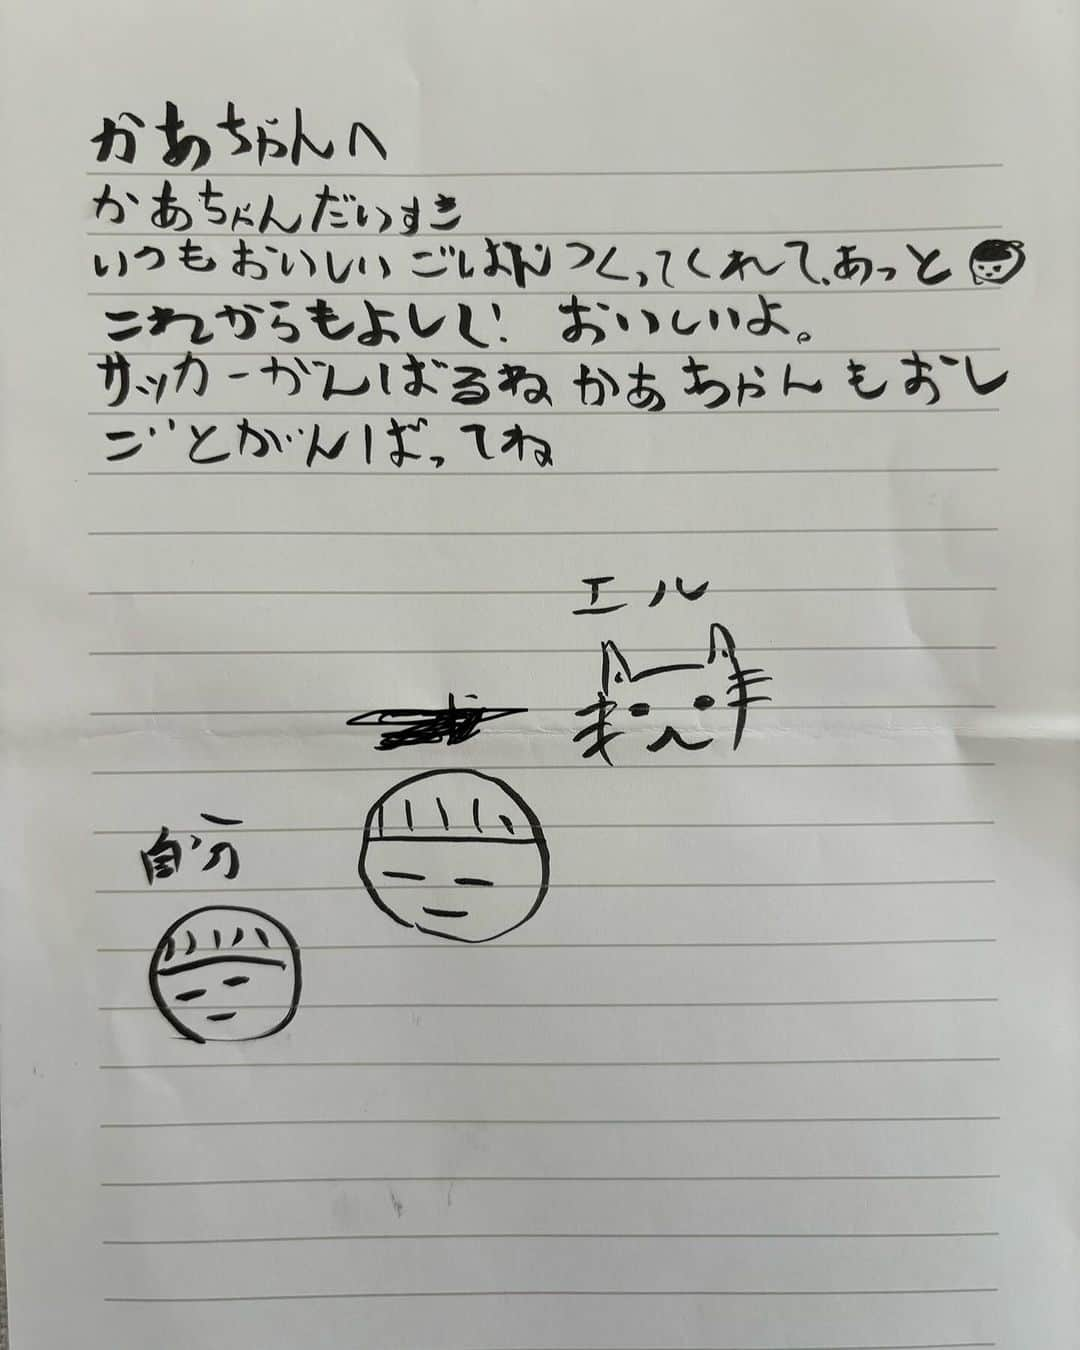 かあちゃんへ
かあちゃんだいすき
いつもおいしいごはんつくってくれて、あっと
これからもよしし! おいしいよ。
サッカーがんばるね かあちゃんもおし
ごとがんばってね
エル
自分